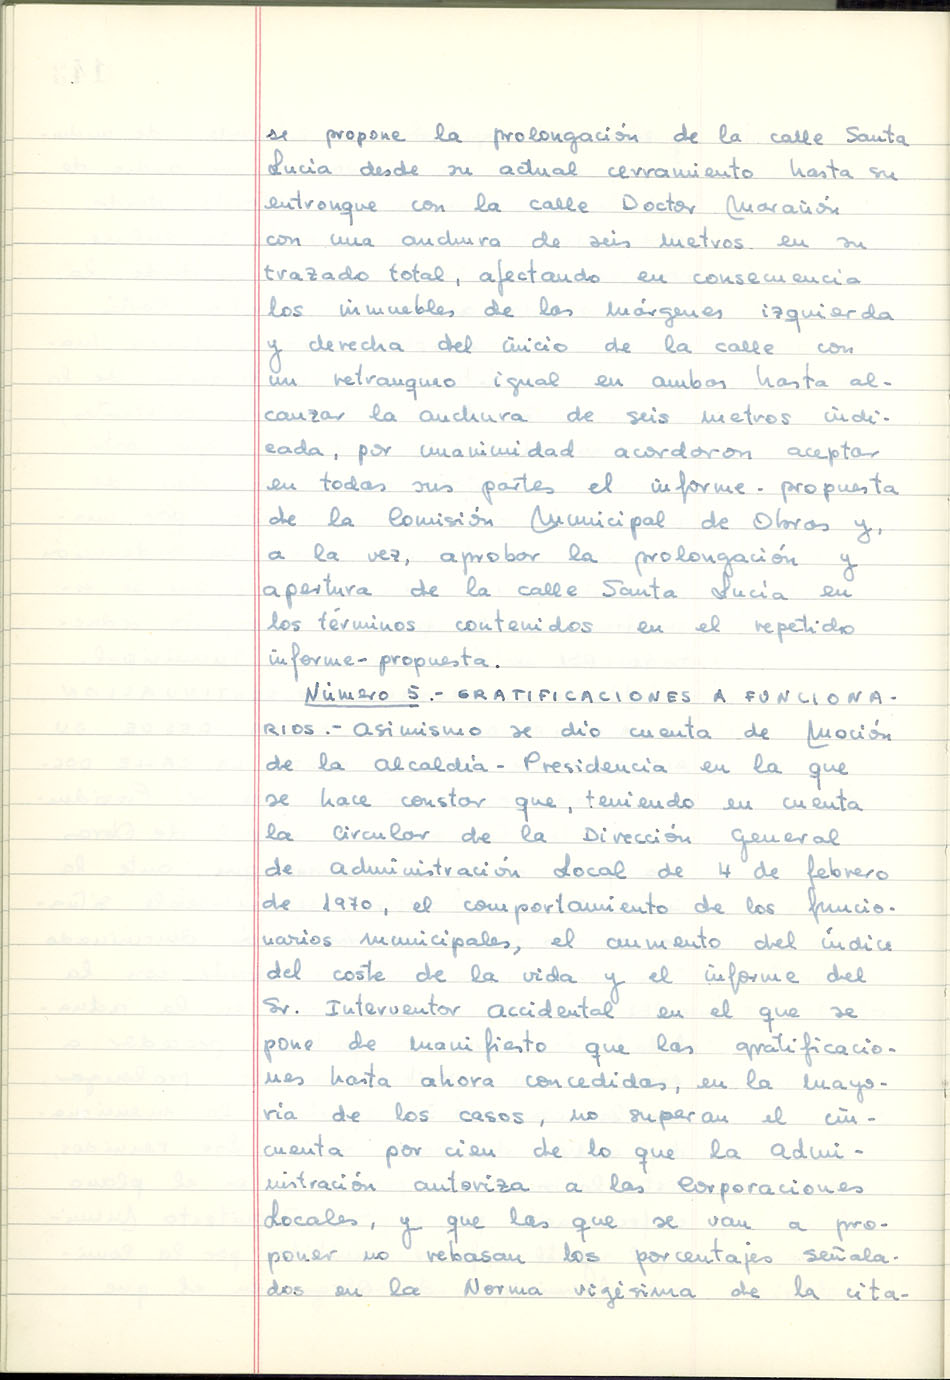 se propone la prolongación de la calle Santa
Lucia desde su actual cerramiento hasta su
entronque con la calle Doctor Marañón
con una anchura de seis metros en su
trazado total, afectando en consecuencia
los inmuebles de las márgenes izquierda
y derecha del inicio de la calle con
un retranqueo igual en ambas hasta al-
canzar la anchura de seis metros indi-
cada, por unanimidad acordaron aceptar
en todas sus partes el informe-propuesta
de la Comisión Municipal de Obras y,
a la vez, aprobar la prolongación y
apertura de la calle Santa Lucia en
los términos contenidos en el repetido
informe-propuesta.
Número 5.- GRATIFICACIONES A FUNCIONA-
RIOS.- Asimismo se dió cuenta de Moción
de la Alcaldía-Presidencia en la que
se hace constar que, teniendo en cuenta
la Circular de la Dirección General
de Administración Local de 4 de febrero
de 1970, el comportamiento de los funcio-
narios municipales, el aumento del índice
del coste de la vida y el informe del
Sr. Interventor accidental en el que se
pone de manifiesto que las gratificacio-
nes hasta ahora concedidas, en la mayo-
ría de los casos, no superan el cin-
cuenta por cien de lo que la Admi-
nistración autoriza a las Corporaciones
Locales, y que las que se van a pro-
poner no rebasan los porcentajes señala-
dos en la Norma vigésima de la cita-